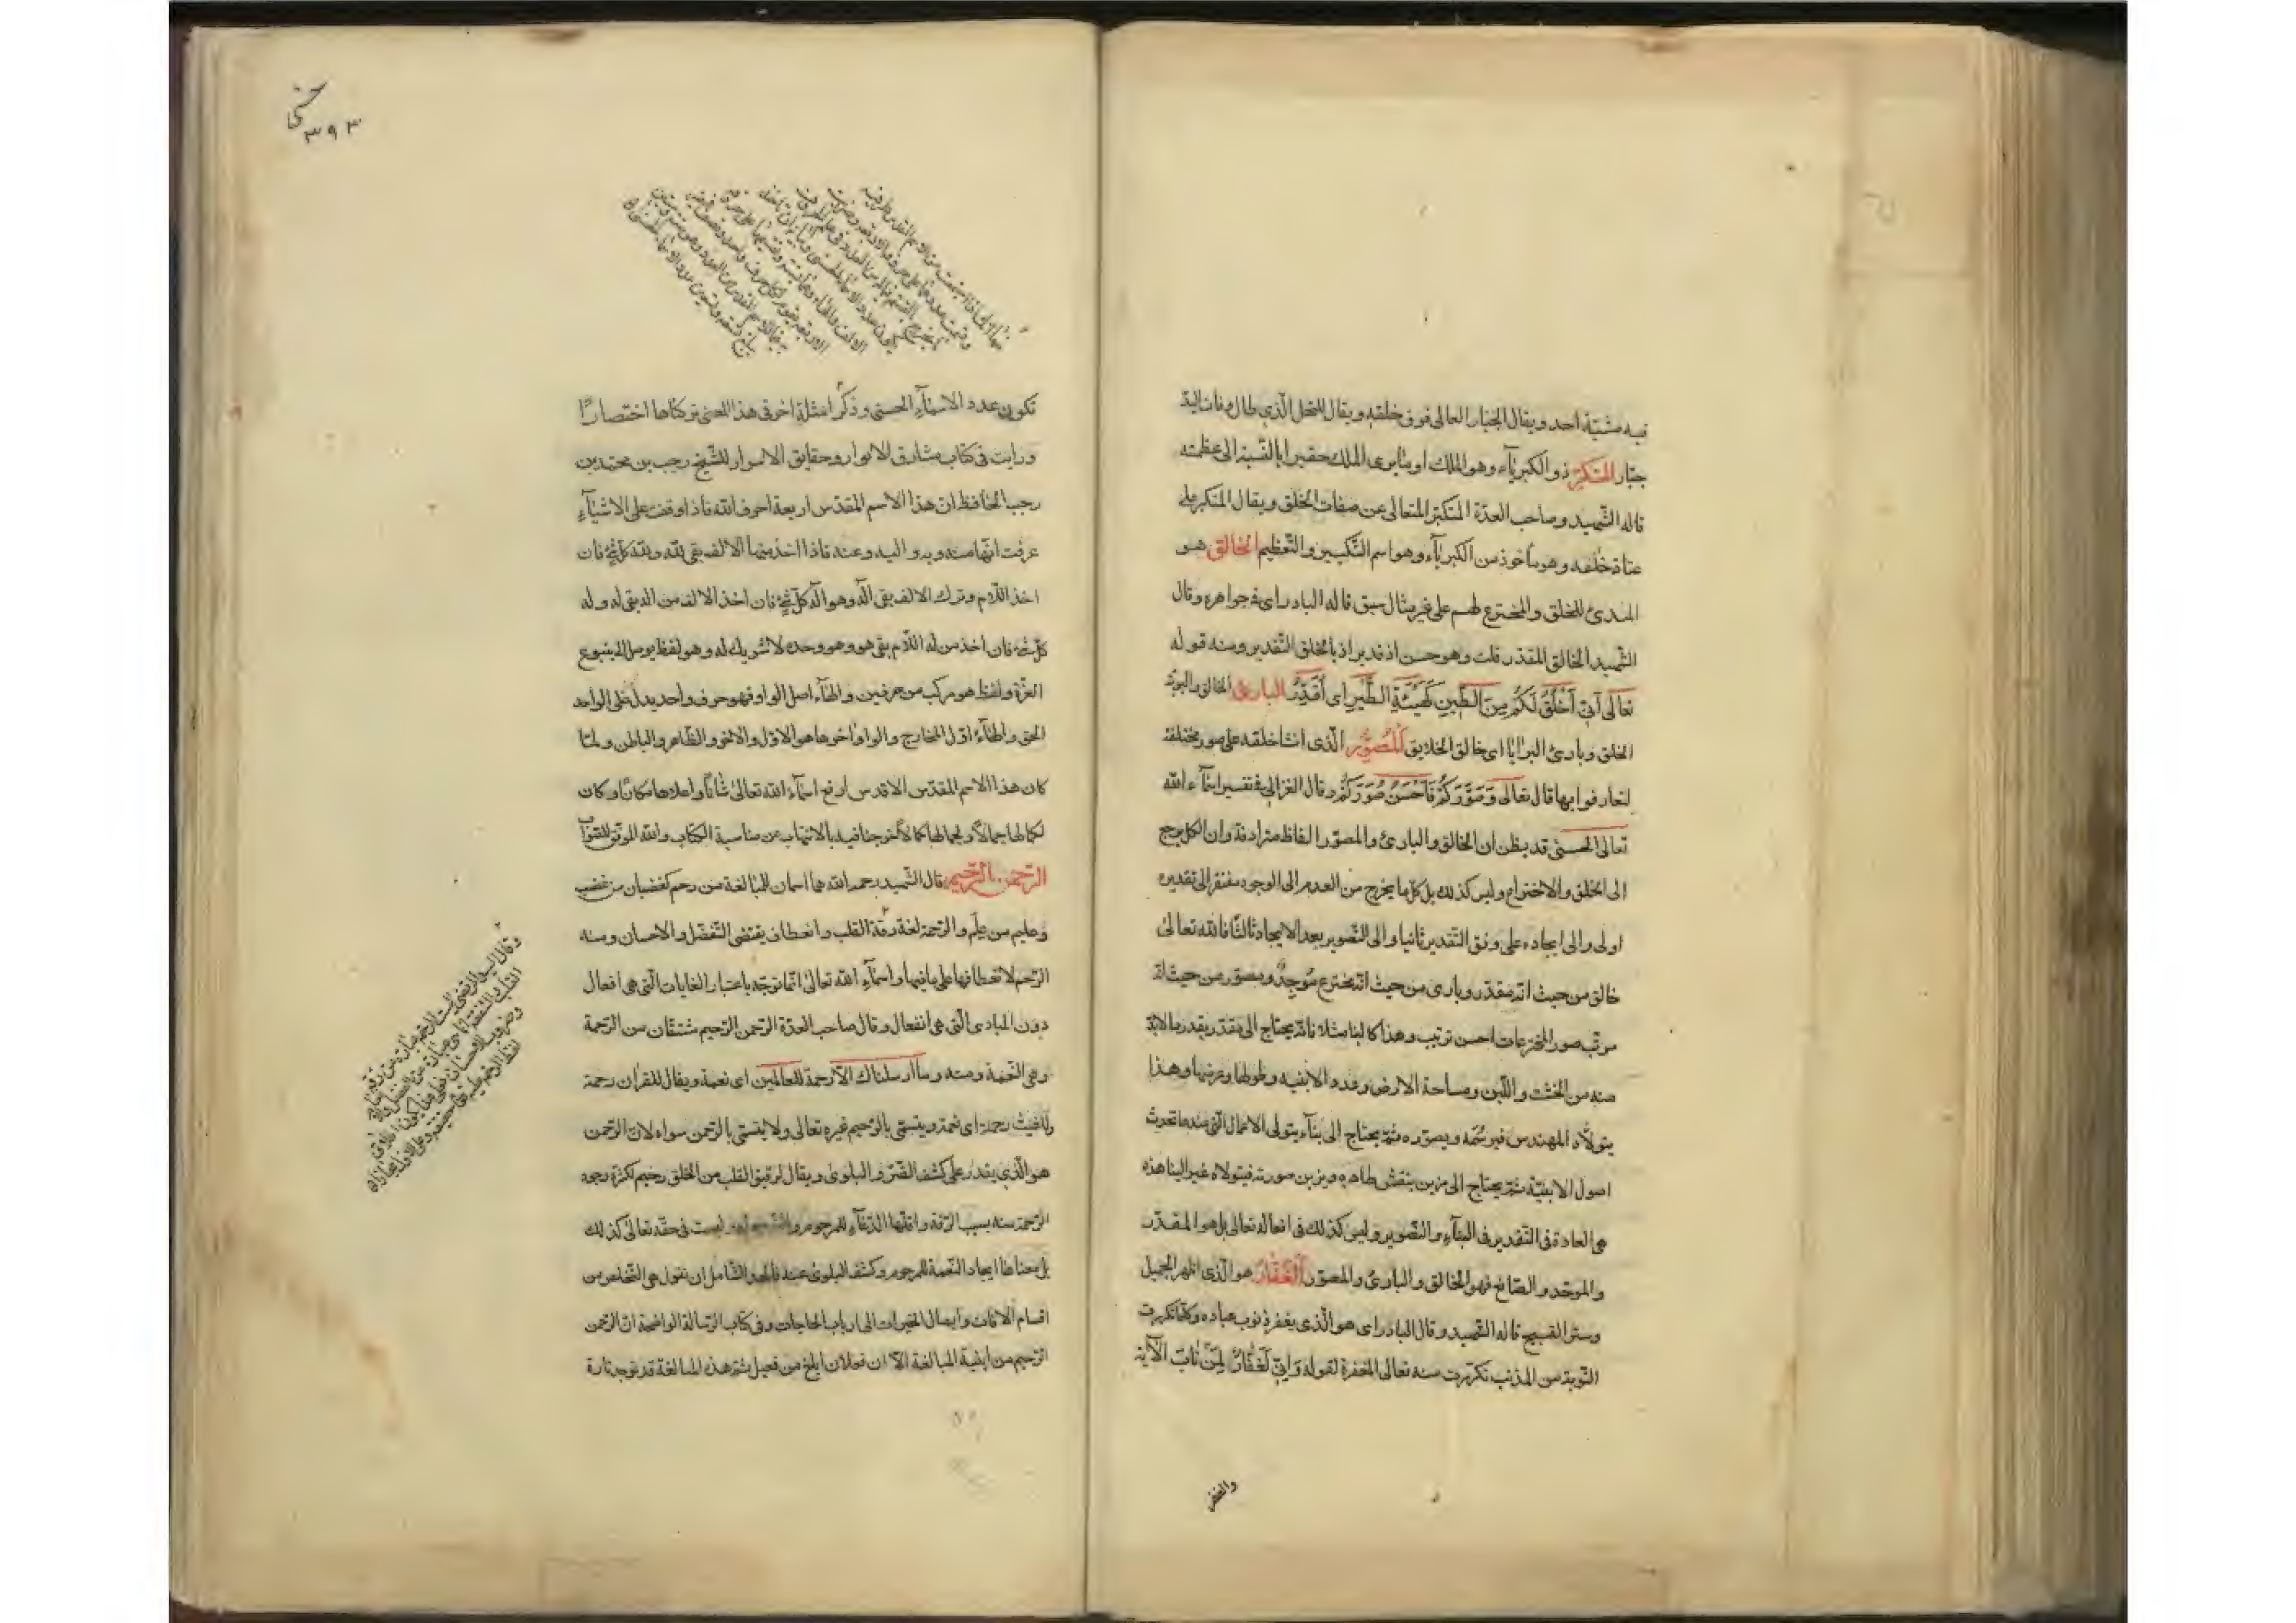 فيه مشيّة احد ويقال الجبّار العالى فوق خلقه ويقال للنخل الّذى طال وفات اليد
جبّار المتكبّر ذو الكبريآء وهو الملك او ما يرى الملك حقيرا بالنّسبة الى عظمته
قاله الشّهيد وصاحب العدّة المتكبّر المتعالى عن صفات الخلق ويقال المتكبر على
عتاة خلقه وهو مأخوذ من الكبريآء وهو اسم التّكبير والتّعظيم الخالق هو
المبدئ للخلق والمخترع لهم على غير مثال سبق قاله البادراى فى جواهره وقال
الشّهيد الخالق المقدّر قلت وهو حسن اذ الخلق التّقدير ومنه قوله
تعالى اَنّى اَخْلُقُ لَكُمْ مِنَ الطّينِ كَهَيْئَةِ الطَّيْرِ اى اُقَدِّرُ البارئ الخالق والبرية
الخلق وبارئ البرايا اى خالق الخلايق المُصَوِّر الّذى انشا خلقه على صور مختلفة
لتعارفوا بها قال تعالى وَصَوَّرَكُمْ فَاَحْسَنَ صُوَرَكُمْ وقال الغزالى فى تفسير اسمآء الله
تعالى الحسنى قد يظن ان الخالق والبارئ والمصوّر الفاظ مترادفة وان الكل يرجع
الى الخلق والاختراع وليس كذلك بل كلّ ما يخرج من العدم الى الوجود مفتقر الى تقديره
اولى والى ايجاده على وفق التقدير ثانيا والى التّصوير بعد الايجاد ثالثا فالله تعالى
خالق من حيث انّه مقدّر وبارئ من حيث انّه مخترع مُوجِدٌ ومصوّر من حيث انّه
مرتّب صور المخترعات احسن ترتيب وهذا كالبنا مثلا فانّه يحتاج الى مقدّر يقدر ما لابدّ
منه من الخشب واللّبن ومساحة الارض وعدد الابنيه وطولها وعرضها وهذا
يتولاّه المهندس فيرسُمه ويصوّره ثمّ يحتاج الى بنآء يتولى الاعمال الّتى عندها تحدث
اصول الابنيّة ثمّ يحتاج الى مزين ينقش ظاهره ويزين صورته فيتولاه غير البنا هذه
هى العادة فى التّقدير فى البنآء والتّصوير وليس كذلك فى افعاله تعالى بل هو المقدّر
والموجد والصّانع فهو الخالق والبارئ والمصوّر الغَفّارُ هو الّذى اظهر الجميل
وستر القبيح قاله الشّهيد وقال البادراى هو الّذى يغفر ذنوب عباده وكلّما تكررت
التّوبة من المذنب تكرّرت منه تعالى المغفرة لقوله وَاِنّى لَغَفّارٌ لِمَنْ تابَ الآية
والغفر
٣٩٣
تكون عدد الاسمآء الحسنى وذكر امثلة اخر فى هذا المعنى تركناها اختصارًا
ورايت فى كتاب مشارق الانوار وحقايق الاسرار للشّيخ رجب بن محمّد بن
رجب الحافظ ان هذا الاسم المقدّس اربعة احرف الله فاذا وقفت على الاشيآء
عرفت انّها منه وبه واليه وعنه فاذا اخذ منها الالف بقى لله ولله كلّ شئ فان
اخذ اللاّم وترك الالف بقى الَه وهو الَه كلّ شئ فان اخذ الالف من اله بقى له وله
كلّ شئ فان اخذ من له اللاّم بقى هو وهو وحده لا شريك له وهو لفظ يوصل الى ينبوع
العزّة ولفظ هو مركب من حرفين والهآء اصل الواو فهو حرف واحد يدل على الواحد
الحق والهآء اوّل المخارج والواو اخرها هو الاوّل والاخر والظّاهر والباطن ولمّا
كان هذا الاسم المقدّس الاقدس ارفع اسمآء الله تعالى شانًا واعلاها مكانًا وكان
لكمالها جمالاً ولجمالها كمالاً خرجنا فيه بالاسهاب عن مناسبة الكتاب والله الموفق للصّواب
الرّحمن الرّحيم قال الشّهيد رحمه الله هما اسمان للمبالغة من رحم كغضبان من غضب
وعليم من علم والرّحمة لغة رقة القلب وانعطاف يقتضى التّفضّل والاحسان ومنه
الرّحم لانعطافها على ما فيها واسمآء الله تعالى انّما توخذ باعتبار الغايات الّتى هى افعال
دون المبادى الّتى هى انفعال وقال صاحب العدّة الرّحمن الرّحيم مشتقّان من الرّحمة
وهى النّعمة ومنه وما ارسلناك الاّ رحمة للعالمين اى نعمة ويقال للقران رحمة
وللغيث رحمة اى نعمة ويتسمّى بالرّحيم غيره تعالى ولا يتسمّى بالرّحمن سواه لانّ الرّحمن
هو الّذى يقدر على كشف الضّرّ والبلوى ويقال لرقيق القلب من الخلق رحيم لكثرة وجود
الرّحمة منه بسبب الرّقة واقلّها الدّعآء للمرحوم والتّوجّع له وليست فى حقّه تعالى كذلك
بل معناها ايجاد النّعمة للمرحوم وكشف البلوى عنه فالحد الشّامل ان نقول هى التّخلص من
اقسام الافات وايصال الخيرات الى ارباب الحاجات وفى كتاب الرّسالة الواضحة انّ الرّحمن
الرّحيم من ابنية المبالغة الاّ ان فعلان ابلغ من فعيل ثمّ هذه المبالغة قد توجد تارة